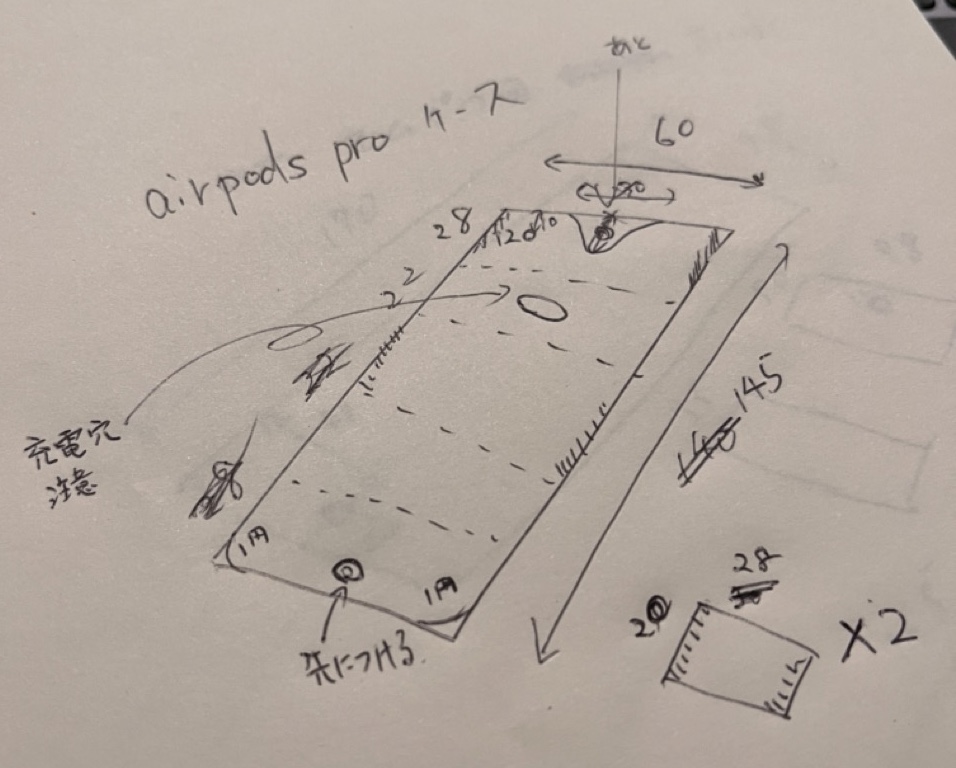 あと
airpods pro ケース
60
28
22
充電穴
注意
145
140
1円
1円
先につける
28
20
×2